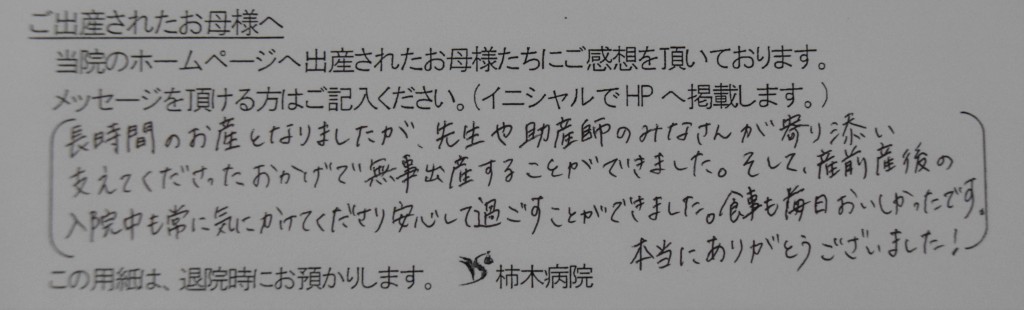 ご出産されたお母様へ
当院のホームページへ出産されたお母様たちにご感想を頂いております。
メッセージを頂ける方はご記入ください。(イニシャルでHPへ掲載します。)
長時間のお産となりましたが、先生や助産師のみなさんが寄り添い
支えてくださったおかげで無事出産することができました。そして、産前産後の
入院中も常に気にかけてくださり安心して過ごすことができました。食事も毎日おいしかったです。
本当にありがとうございました!
この用紙は、退院時にお預かりします。 柿木病院